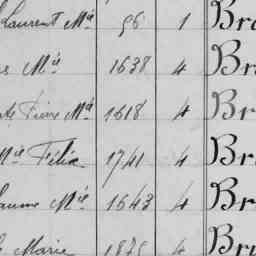 Laurent Mie 96 1 Bra
s Mie 1638 4 Bra
Pierre Mie 1618 4 Br
Mie Félix 1741 4 Bra
aume Mie 1643 4 Br
Marie 1875 4 Bru